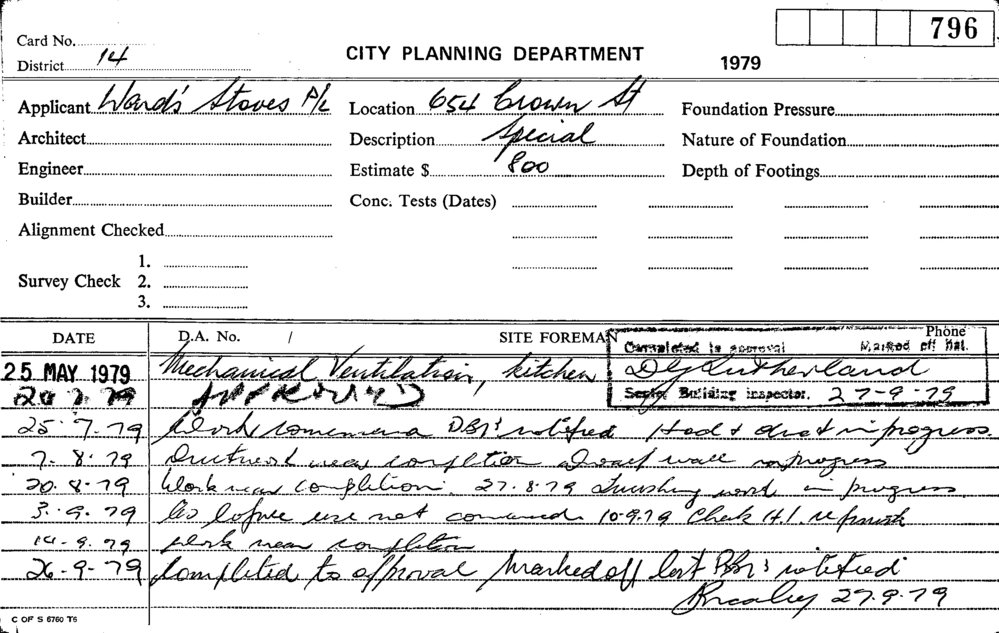 796
Card No.
District 14
CITY PLANNING DEPARTMENT
1979
Applicant Ward's Stoves P/L Location 654 Crown St Foundation Pressure
Architect Description Special Nature of Foundation
Engineer Estimate $ 800 Depth of Footings
Builder Conc. Tests (Dates)
Alignment Checked
1.
Survey Check 2.
3.
DATE D.A. No. / SITE FOREMAN Phone
Completed to approval Marked off list.
25 MAY 1979 Mechanical Ventilation, kitchen D G Sutherland
79 APPROVED Senior Building inspector. 27-9-79
25-7-79 Work D.B.I's notified Hood & duct in progress.
7-8-79 Ductwork near completion Dwarf wall in progress
20-8-79 Work near completion. 27-8-79 Finishing work in progress
3-9-79 use not 10-9-79 Check H.I.
14-9-79 Work near completion
26-9-79 Completed to approval Marked off list notified
27.9.79
C OF S 6760 T6